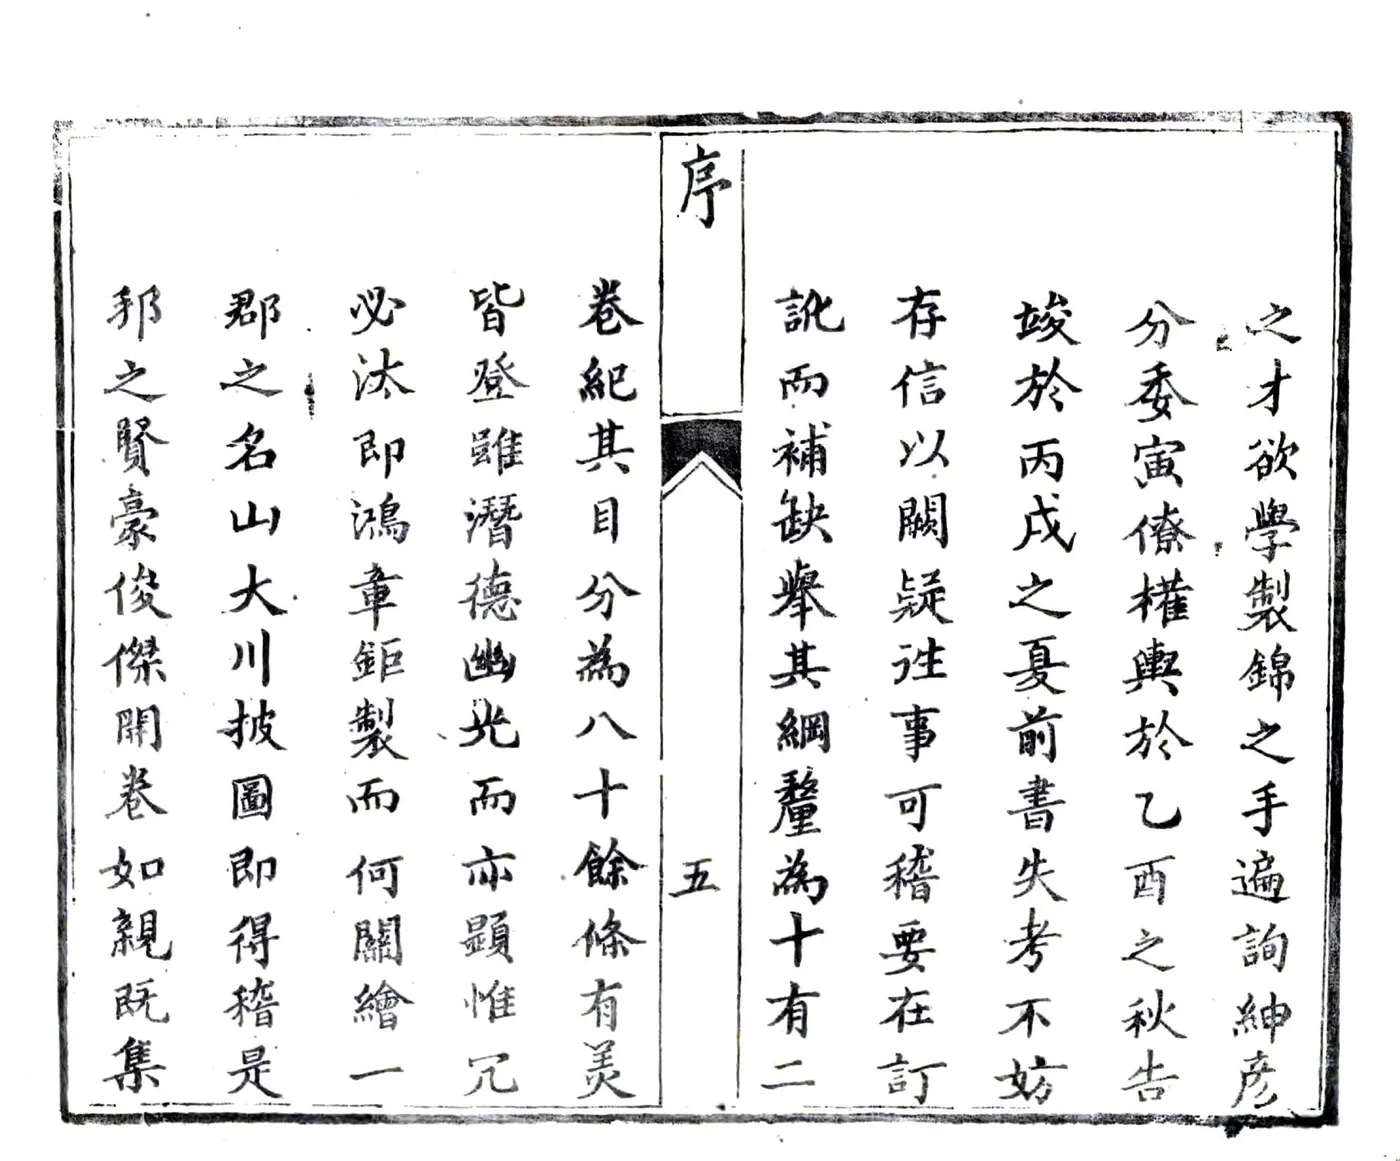 之才欲學製錦之手遍詢紳彦
分委寅僚權輿於乙酉之秋告
竣於丙戌之夏前書失考不妨
存信以闕疑往事可稽要在訂
訛而補缺舉其綱釐為十有二
序
五
卷紀其目分為八十餘條有美
皆登雖潛德幽光而亦顯惟冗
必汰即鴻章鉅製而何關繪一
郡之名山大川披圖即得稽是
邦之賢豪俊傑開卷如親既集